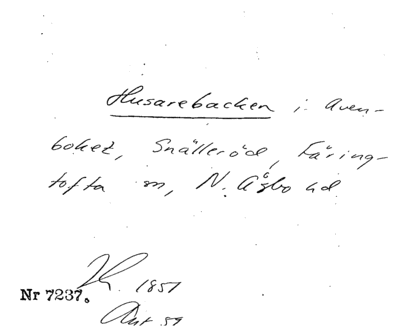 Husarebacken i Aven-
boket, Snälleröd, Färing-
tofta sn, N. Åsbo hd
1851
Nr 7237.
Ant. 59